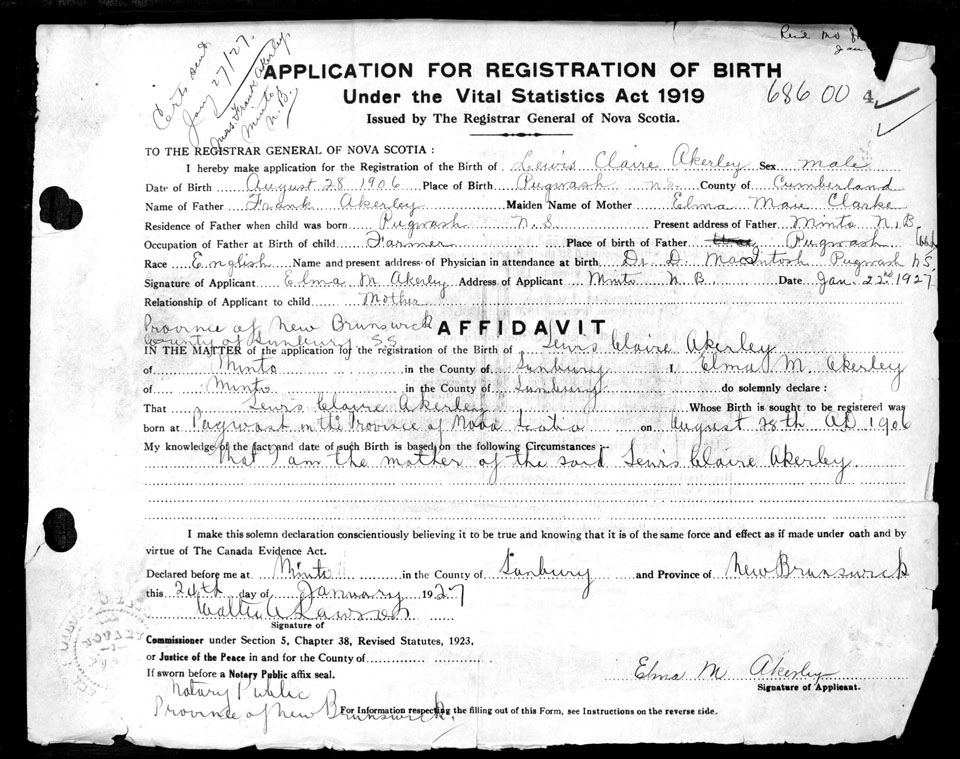 Certs sent
Jany 27/27.
Mrs. Frank Akerley
Minto
N.B.
Jan
APPLICATION FOR REGISTRATION OF BIRTH
Under the Vital Statistics Act 1919
68600 4
Issued by The Registrar General of Nova Scotia.
TO THE REGISTRAR GENERAL OF NOVA SCOTIA:
I hereby make application for the Registration of the Birth of Lewis Claire Akerley Sex male
Date of Birth August 28 1906 Place of Birth Pugwash N.S. County of Cumberland
Name of Father Frank Akerley Maiden Name of Mother Elma May Clarke
Residence of Father when child was born Pugwash N.S. Present address of Father Minto N.B.
Occupation of Father at Birth of child Farmer Place of birth of Father Pugwash
Race English Name and present address of Physician in attendance at birth Dr D. MacIntosh Pugwash N.S.
Signature of Applicant Elma M Akerley Address of Applicant Minto N.B Date Jan. 22nd 1927
Relationship of Applicant to child Mother
Province of New Brunswick
AFFIDAVIT
County of Sunbury SS
IN THE MATTER of the application for the registration of the Birth of Lewis Claire Akerley
of Minto in the County of Sunbury I, Elma M. Akerley
of Minto in the County of Sunbury do solemnly declare:
That Lewis Claire Akerley Whose Birth is sought to be registered was
born at Pugwash in the Province of Nova Scotia on August 28th AD 1906
My knowledge of the fact and date of such Birth is based on the following Circumstances :-
That I am the mother of the said Lewis Claire Akerley.
I make this solemn declaration conscientiously believing it to be true and knowing that it is of the same force and effect as if made under oath and by
virtue of The Canada Evidence Act.
Declared before me at Minto in the County of Sunbury and Province of New Brunswick
this 24th day of January 1927
Walter A Lawson
Signature of
Commissioner under Section 5, Chapter 38, Revised Statutes, 1923,
or Justice of the Peace in and for the County of
If sworn before a Notary Public affix seal.
Elma M Akerley
Signature of Applicant.
Notary Public
Province of New Brunswick.
For Information respecting the filling out of this Form, see Instructions on the reverse side.